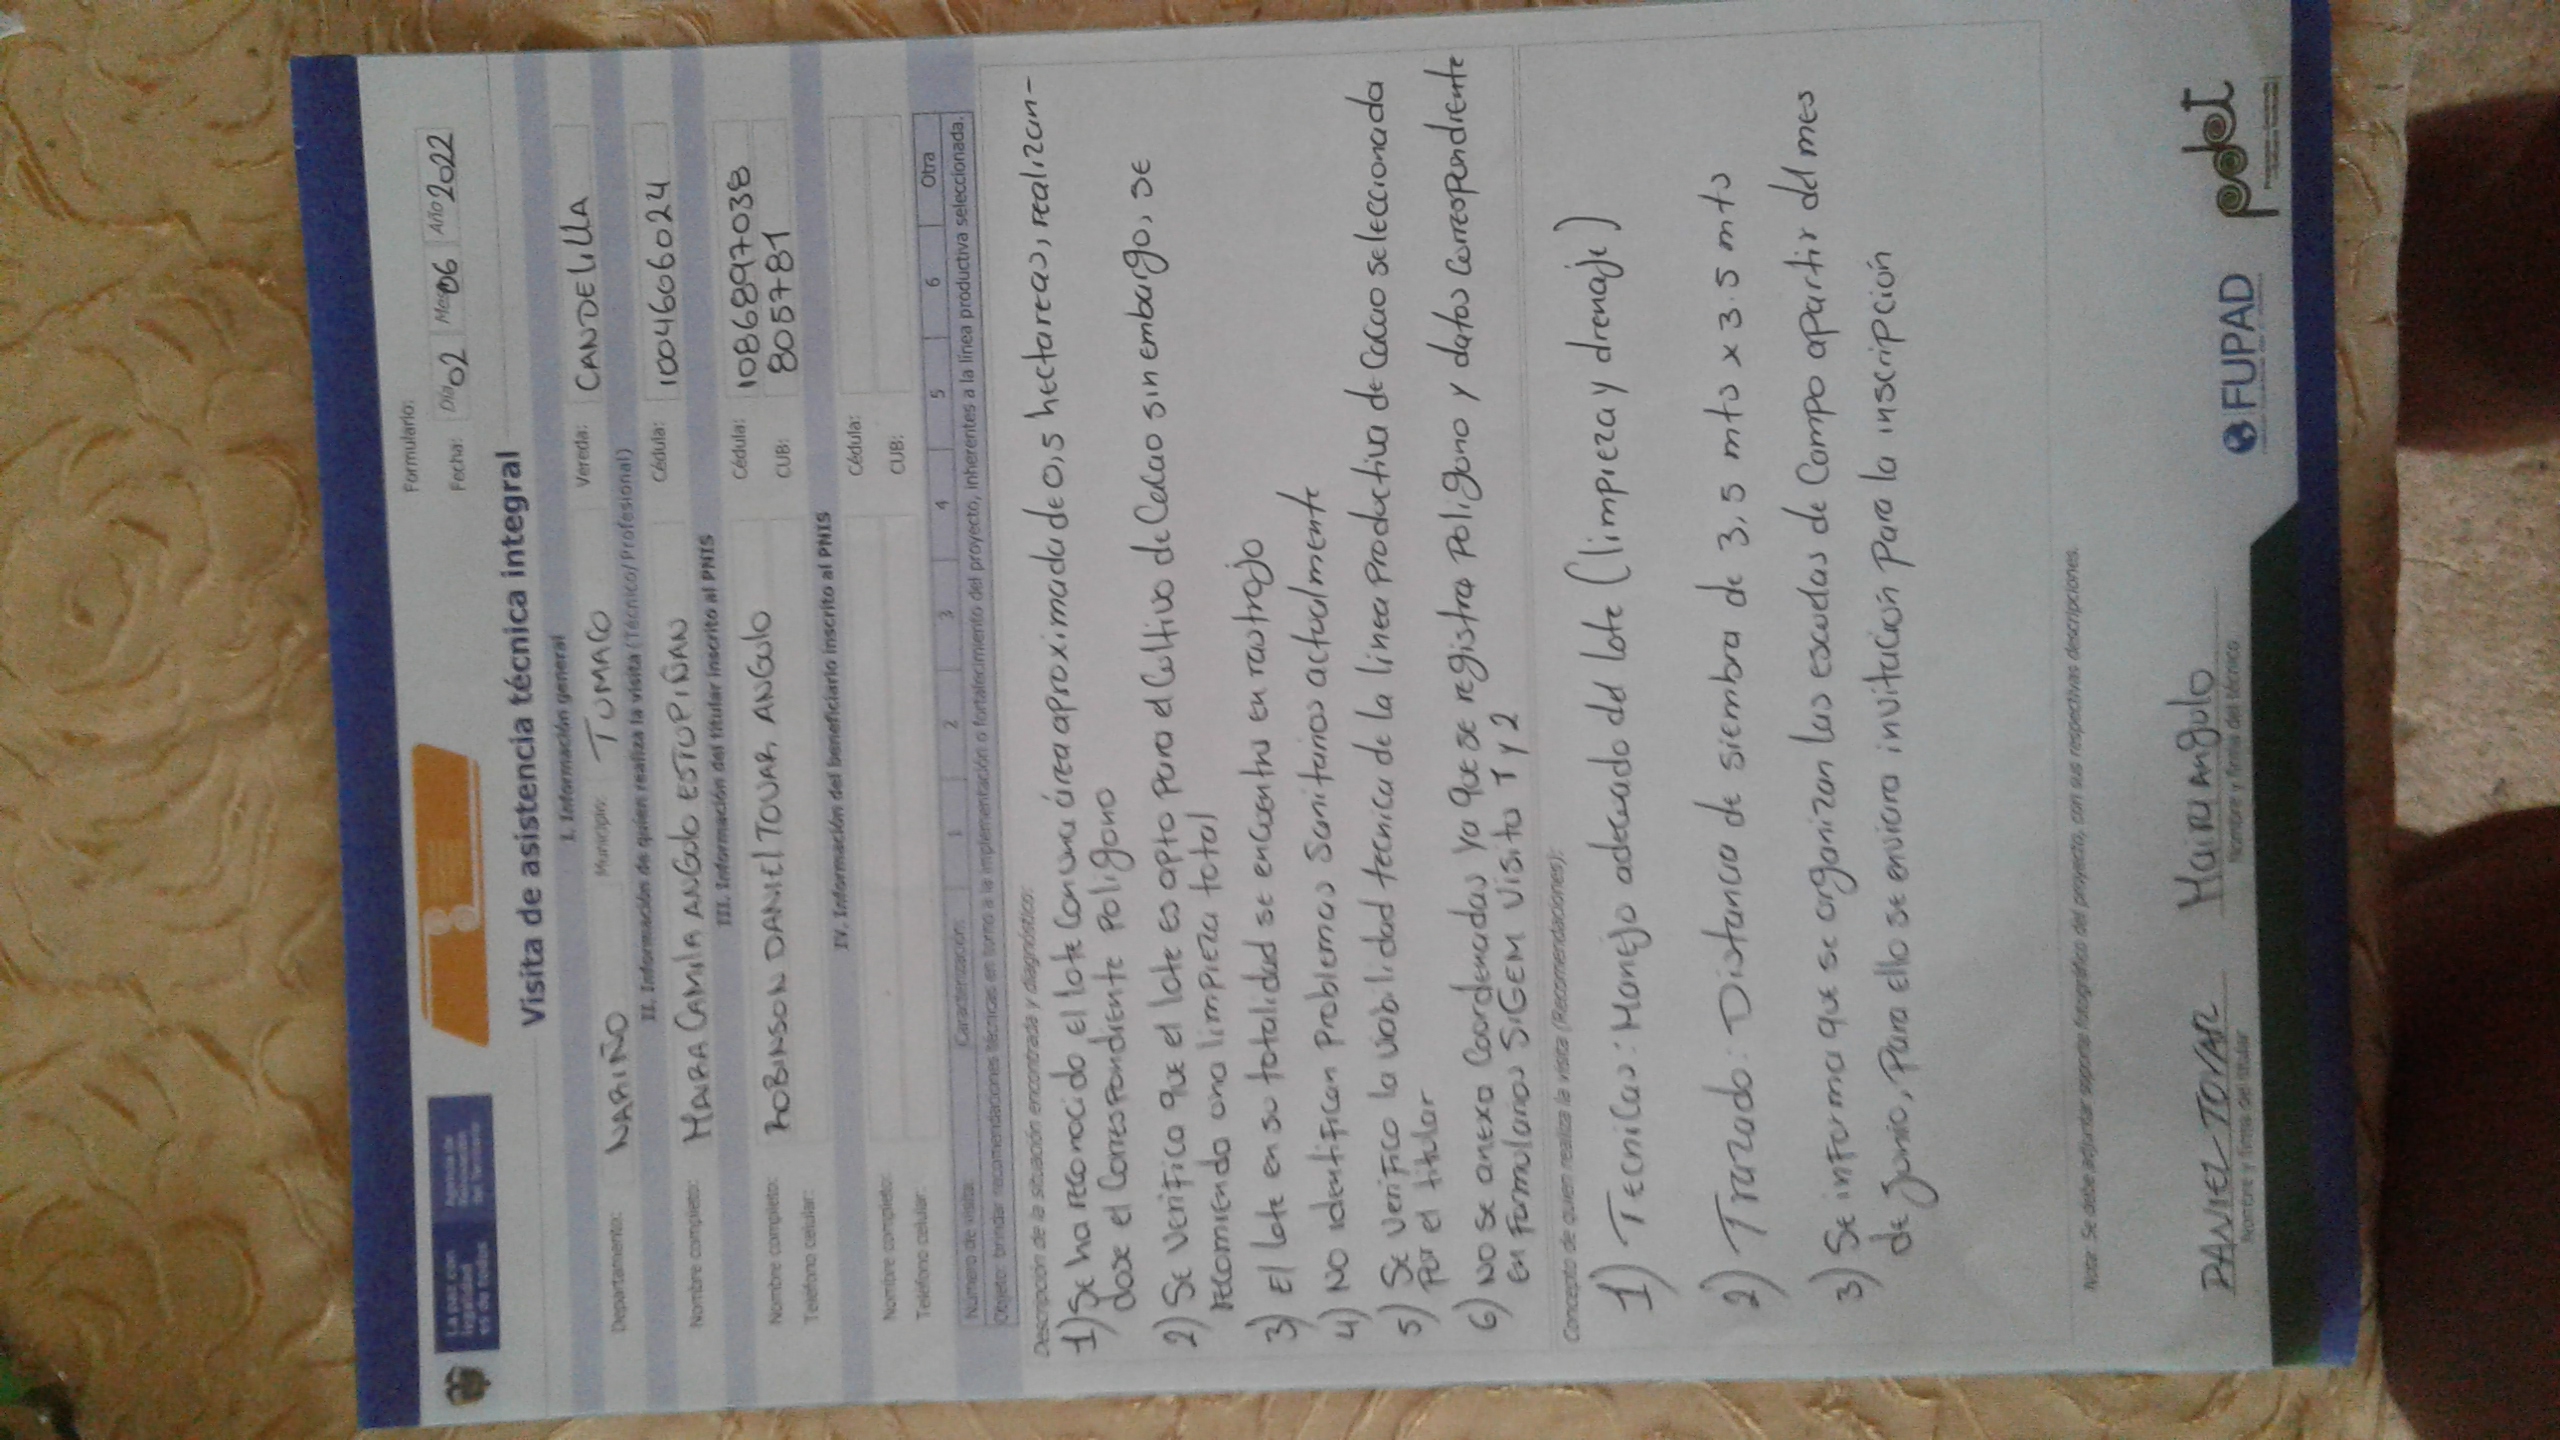 La paz con legalidad es de todos
Agencia de Renovación del Territorio
Formulario:
Fecha: Día 02 Mes 06 Año 2022
Visita de asistencia técnica integral
I. Información general
Departamento: NARIÑO Municipio: TUMACO Vereda: CANDELILLA
II. Información de quien realiza la visita (Técnico/Profesional)
Nombre completo: MAIRA CAMILA ANGULO ESTUPIÑAN Cédula: 1004606024
III. Información del titular inscrito al PNIS
Nombre completo: ROBINSON DANIEL TOVAR ANGULO Cédula: 1086897038
Teléfono celular: CUB: 8057781
IV. Información del beneficiario inscrito al PNIS
Nombre completo: Cédula:
Teléfono celular: CUB:
Número de visita: Caracterización: 1 2 3 4 5 6 Otra
Objeto: brindar recomendaciones técnicas en torno a la implementación o fortalecimiento del proyecto, inherentes a la línea productiva seleccionada.
Descripción de la situación encontrada y diagnóstico:
1) Se ha reconocido el lote con una área aproximada de 0,5 hectareas, realizan-
dose el correspondiente Poligono
2) Se verifica que el lote es apto para el cultivo de Cacao sin embargo, se
recomienda una limpieza total
3) El lote en su totalidad se encuentra en rastrajo
4) No identifican Problemas Sanitarios actualmente
5) Se verifico la viabilidad tecnica de la linea Productiva de Cacao seleccionada
Por el titular
6) No se anexa Coordenadas Ya que se registra Poligono y datos correspondiente
en formularios SIGEM visita 1 y 2
Concepto de quien realiza la visita (Recomendaciones):
1) Tecnicas: Manejo adecuado del lote (limpieza y drenaje)
2) Trazado: Distancia de siembra de 3,5 mts x 3.5 mts
3) Se informa que se organizan las escuelas de Campo apartir del mes
de junio, Para ello se enviara invitación Para la inscripción
Nota: Se debe adjuntar soporte fotográfico del proyecto, con sus respectivas descripciones.
DANIEL TOVAR
Nombre y firma del titular
Maira Angulo
Nombre y firma del técnico
FUPAD
pdet